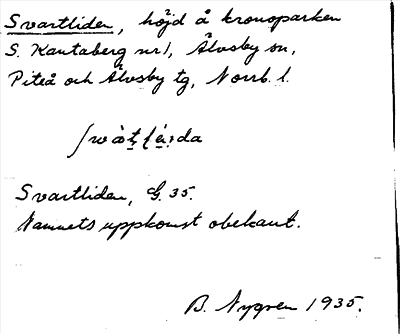 Svartliden, höjd å kronoparken
S. Kantaberg nr 1, Älvsby sn,
Piteå och Älvsby tg, Norrb. l.
Svartliden, G. 35.
Namnets uppkomst obekant.
B. Nygren 1935.